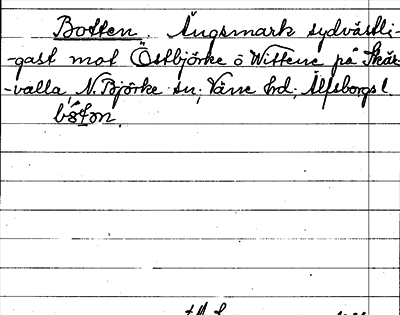 Botten. Ängsmark sydvästli-
-gast mot Östbjörke o Wittene på Skär-
-valla, N. Björke sn; Väne hd; Älfsborgs l.
bòton.